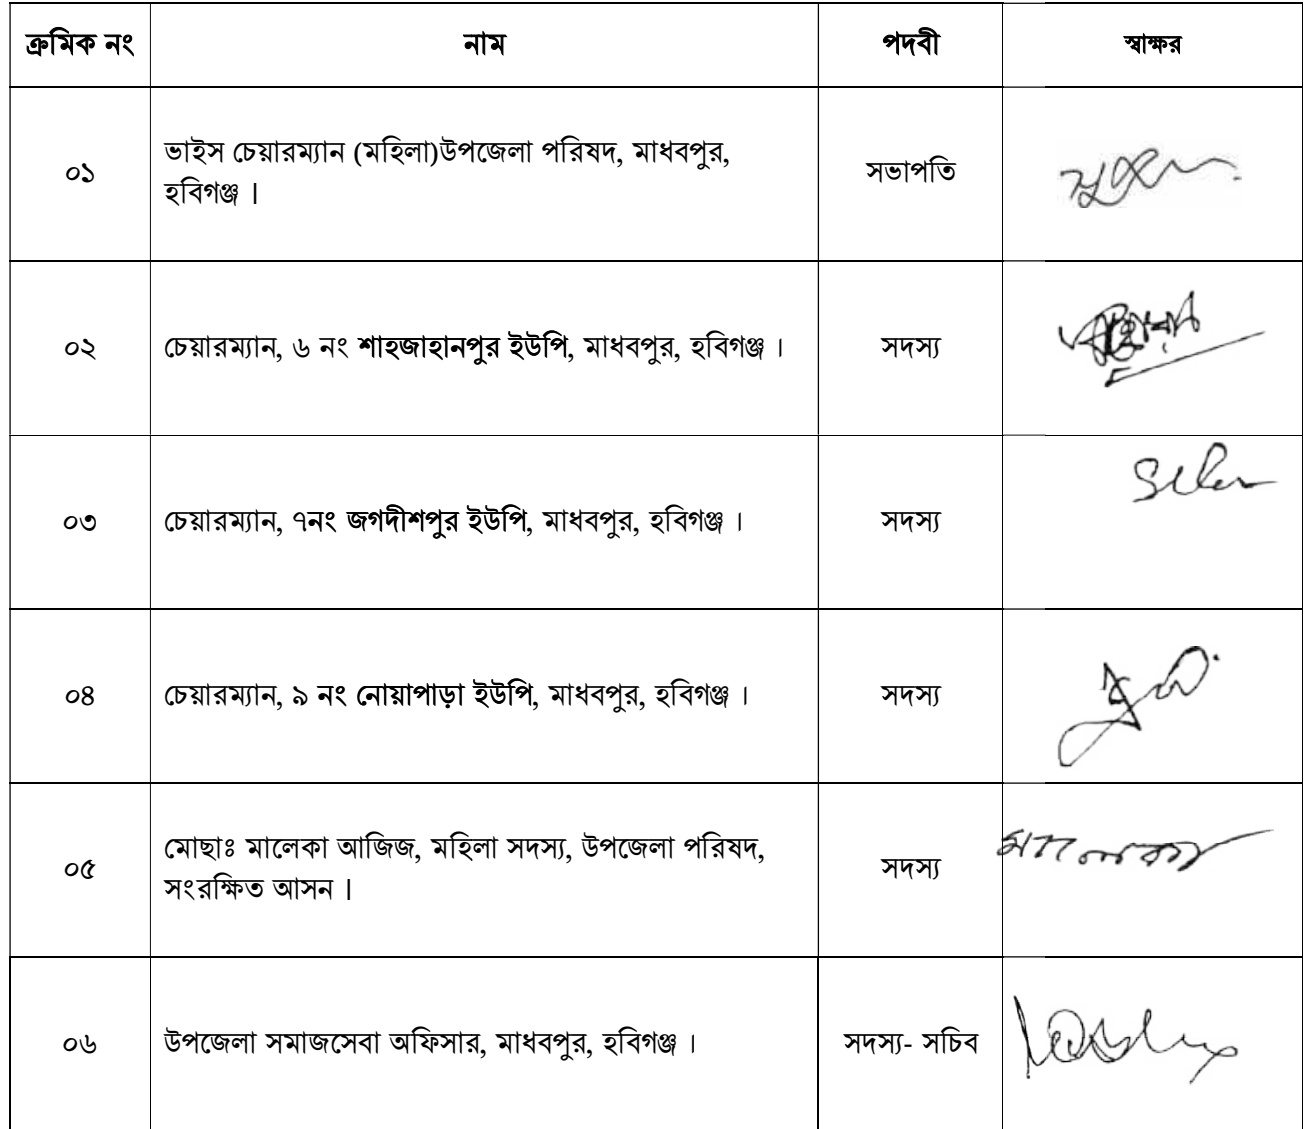 ক্রমিক নং নাম পদবী স্বাক্ষর
০১ ভাইস চেয়ারম্যান (মহিলা)উপজেলা পরিষদ, মাধবপুর, সভাপতি
হবিগঞ্জ ।
০২ চেয়ারম্যান, ৬ নং শাহজাহানপুর ইউপি, মাধবপুর, হবিগঞ্জ । সদস্য
০৩ চেয়ারম্যান, ৭নং জগদীশপুর ইউপি, মাধবপুর, হবিগঞ্জ । সদস্য
০৪ চেয়ারম্যান, ৯ নং নোয়াপাড়া ইউপি, মাধবপুর, হবিগঞ্জ । সদস্য
০৫ মোছাঃ মালেকা আজিজ, মহিলা সদস্য, উপজেলা পরিষদ, সদস্য মালেকা
সংরক্ষিত আসন ।
০৬ উপজেলা সমাজসেবা অফিসার, মাধবপুর, হবিগঞ্জ । সদস্য- সচিব